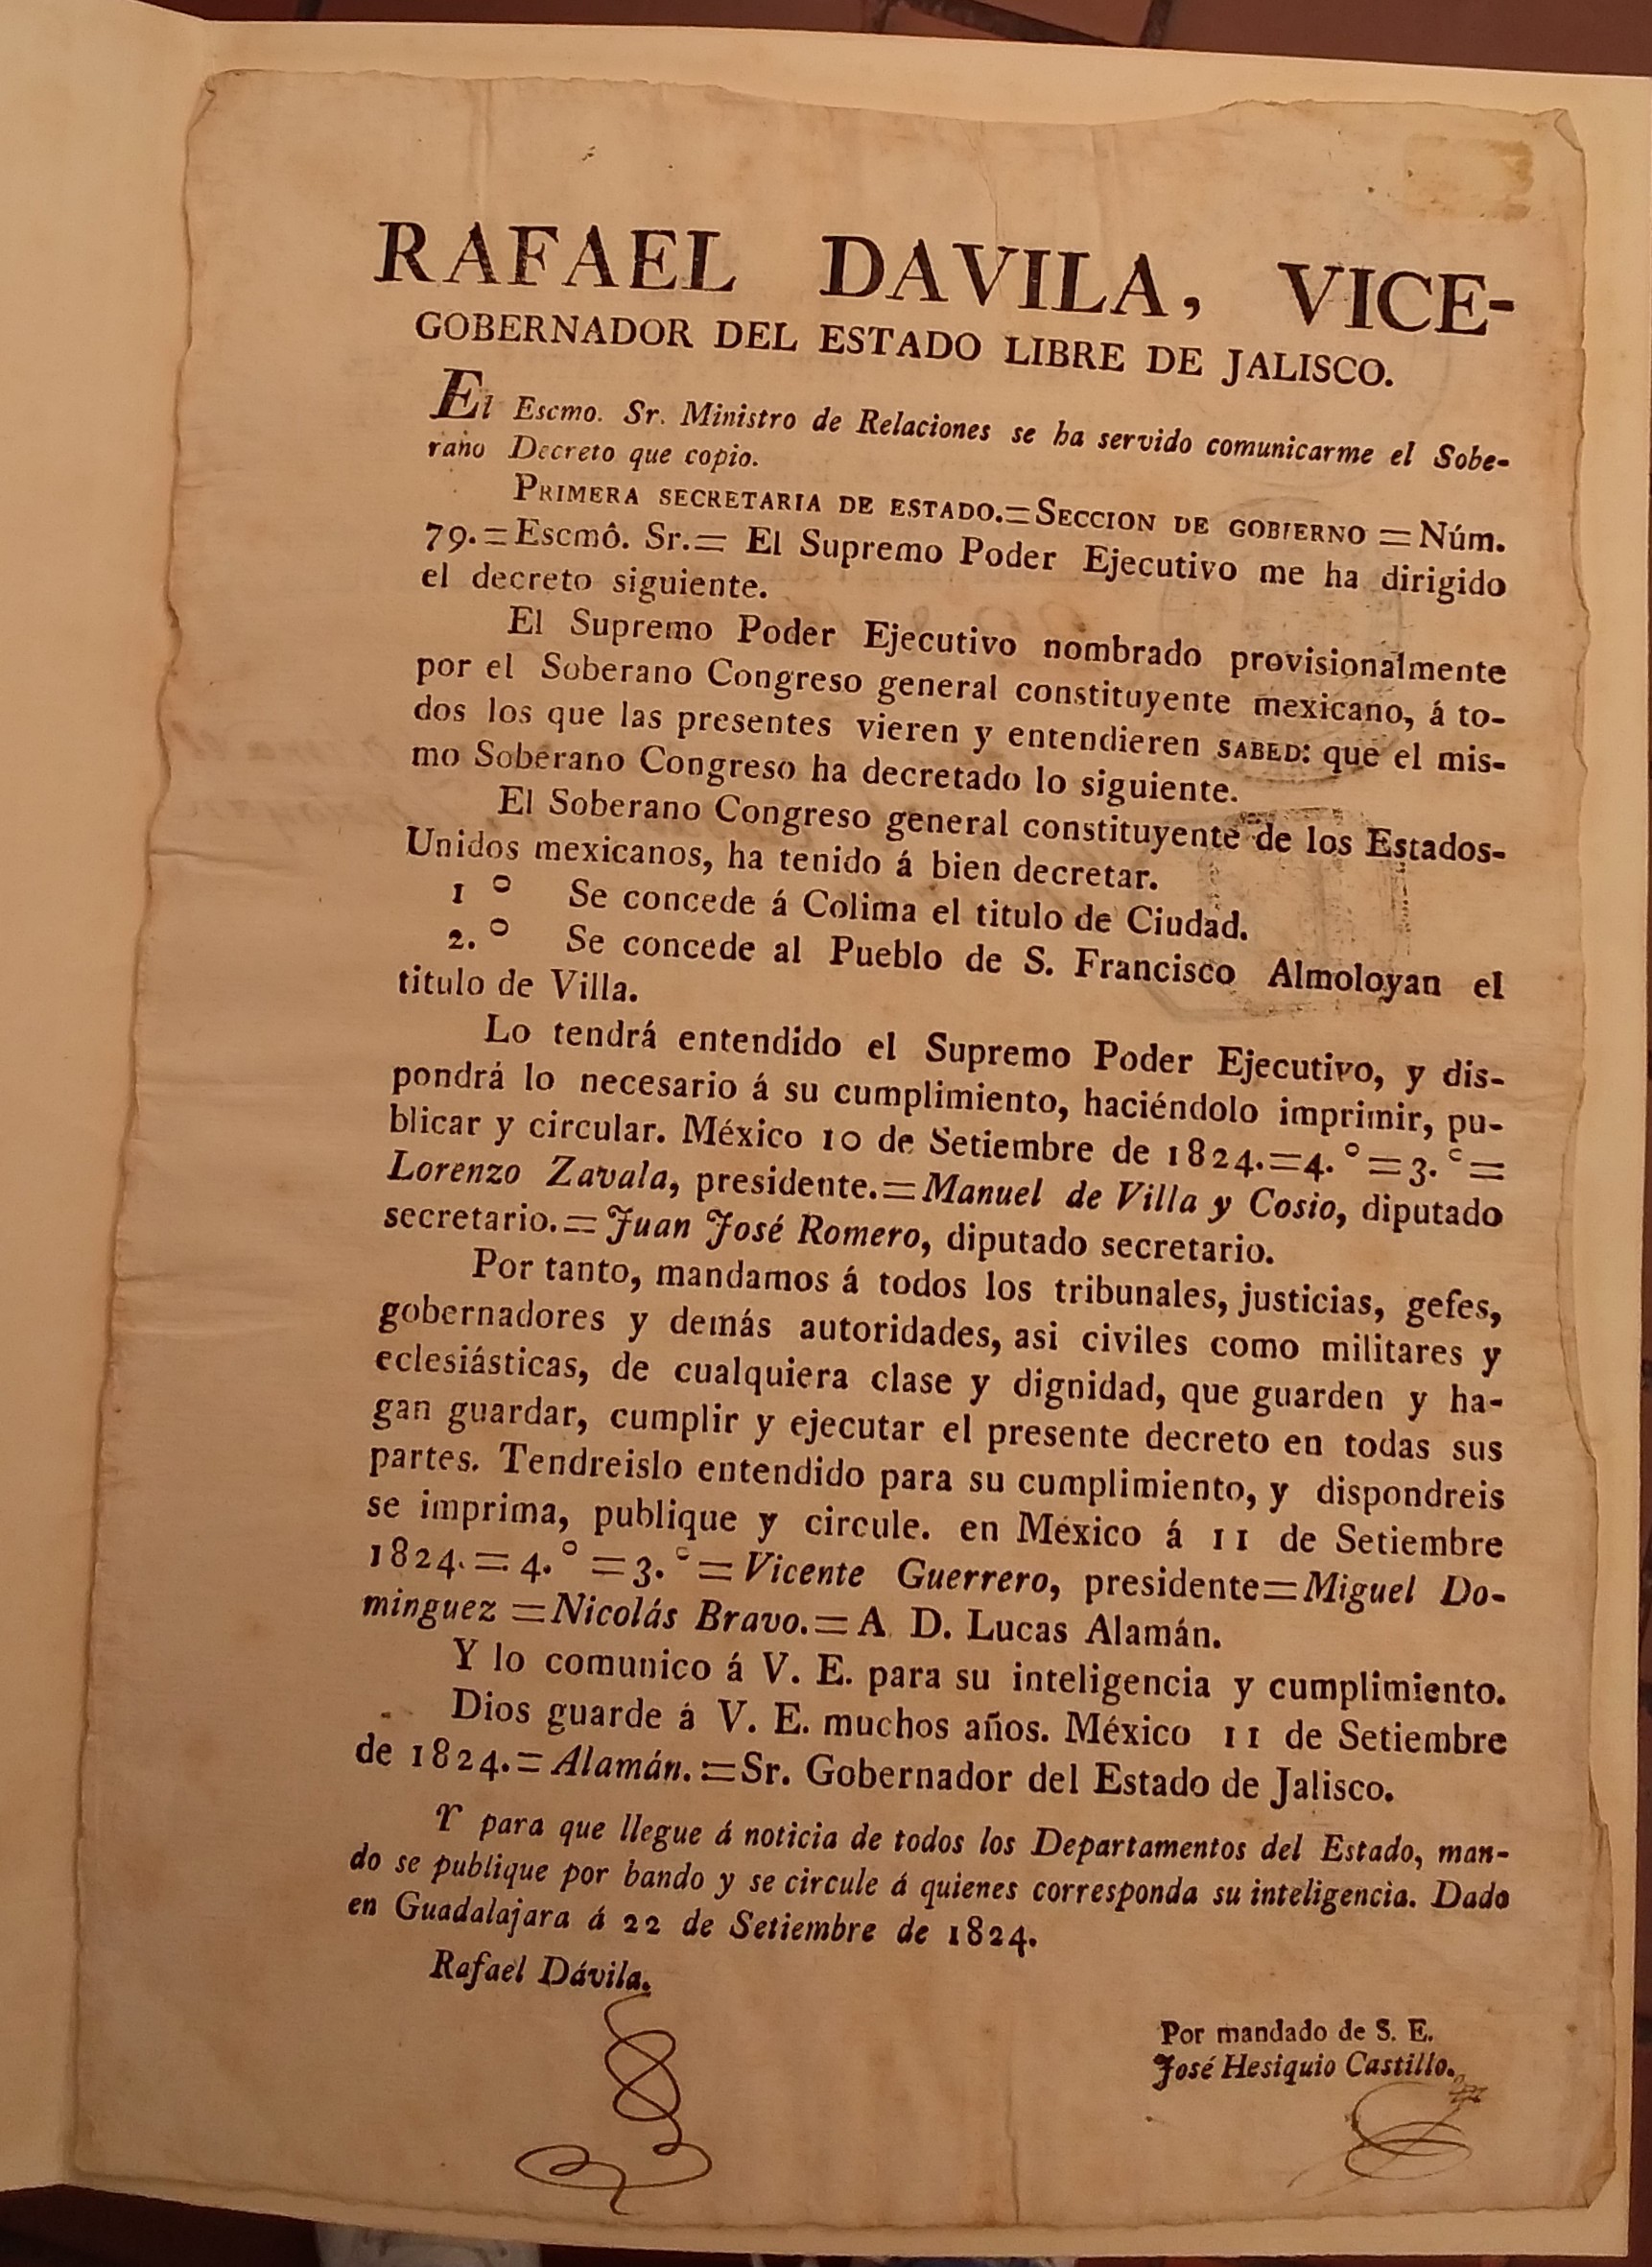 RAFAEL DAVILA, VICE-
GOBERNADOR DEL ESTADO LIBRE DE JALISCO.
El Escmo. Sr. Ministro de Relaciones se ha servido comunicarme el Sobe-
rano Decreto que copio.
PRIMERA SECRETARIA DE ESTADO.=SECCION DE GOBIERNO =Núm.
79.=Escmô. Sr.= El Supremo Poder Ejecutivo me ha dirigido
el decreto siguiente.
El Supremo Poder Ejecutivo nombrado provisionalmente
por el Soberano Congreso general constituyente mexicano, á to-
dos los que las presentes vieren y entendieren SABED: que el mis-
mo Soberano Congreso ha decretado lo siguiente.
El Soberano Congreso general constituyente de los Estados-
Unidos mexicanos, ha tenido á bien decretar.
1 º Se concede á Colima el titulo de Ciudad.
2. º Se concede al Pueblo de S. Francisco Almoloyan el
titulo de Villa.
Lo tendrá entendido el Supremo Poder Ejecutivo, y dis-
pondrá lo necesario á su cumplimiento, haciéndolo imprimir, pu-
blicar y circular. México 10 de Setiembre de 1824.=4. º =3. º =
Lorenzo Zavala, presidente.=Manuel de Villa y Cosio, diputado
secretario.=Juan José Romero, diputado secretario.
Por tanto, mandamos á todos los tribunales, justicias, gefes,
gobernadores y demás autoridades, asi civiles como militares y
eclesiásticas, de cualquiera clase y dignidad, que guarden y ha-
gan guardar, cumplir y ejecutar el presente decreto en todas sus
partes. Tendreislo entendido para su cumplimiento, y dispondreis
se imprima, publique y circule. en México á 11 de Setiembre
1824.=4. º =3. º =Vicente Guerrero, presidente=Miguel Do-
minguez =Nicolás Bravo.=A D. Lucas Alamán.
Y lo comunico á V. E. para su inteligencia y cumplimiento.
Dios guarde á V. E. muchos años. México 11 de Setiembre
de 1824.=Alamán.=Sr. Gobernador del Estado de Jalisco.
Y para que llegue á noticia de todos los Departamentos del Estado, man-
do se publique por bando y se circule á quienes corresponda su inteligencia. Dado
en Guadalajara á 22 de Setiembre de 1824.
Rafael Dávila.
Por mandado de S. E.
José Hesiquio Castillo.